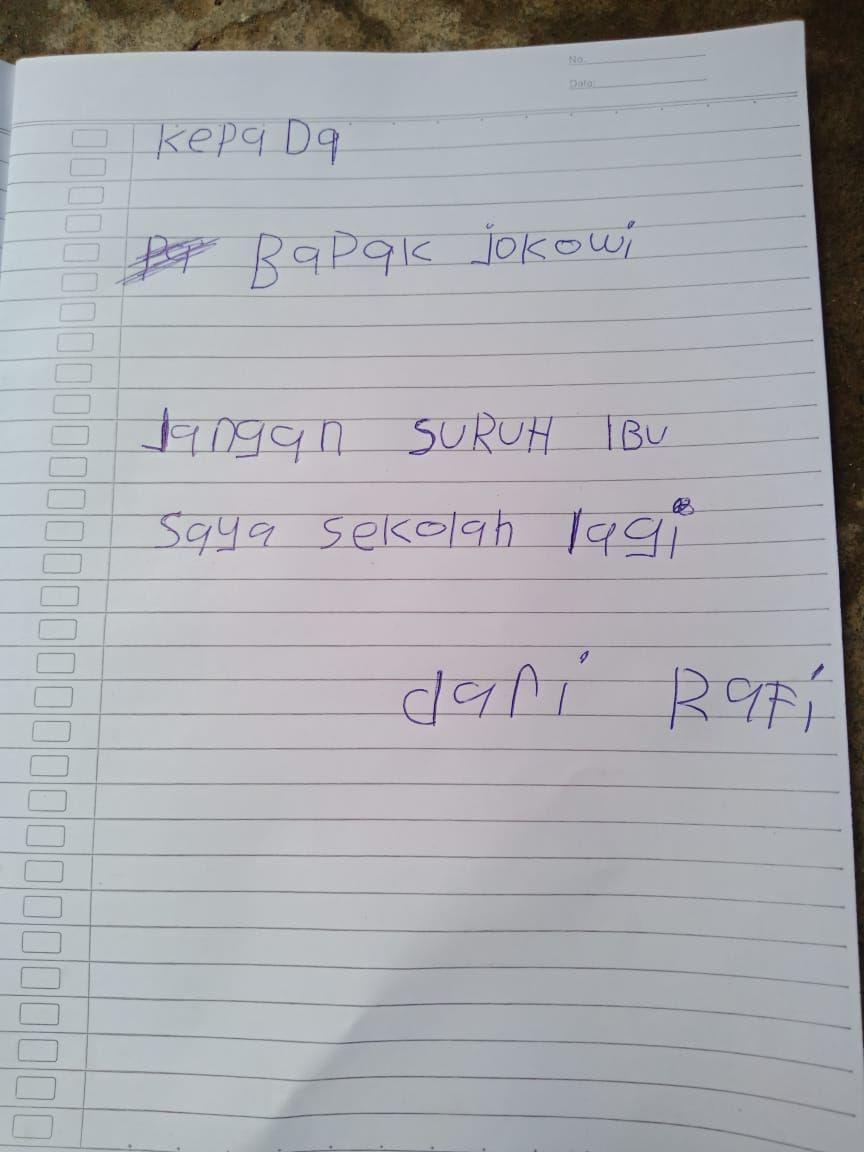 No.
Date:
KepaDa
Pa BaPak jokowi
Jangan SURUH IBU
Saya sekolah lagi
dari RaFi